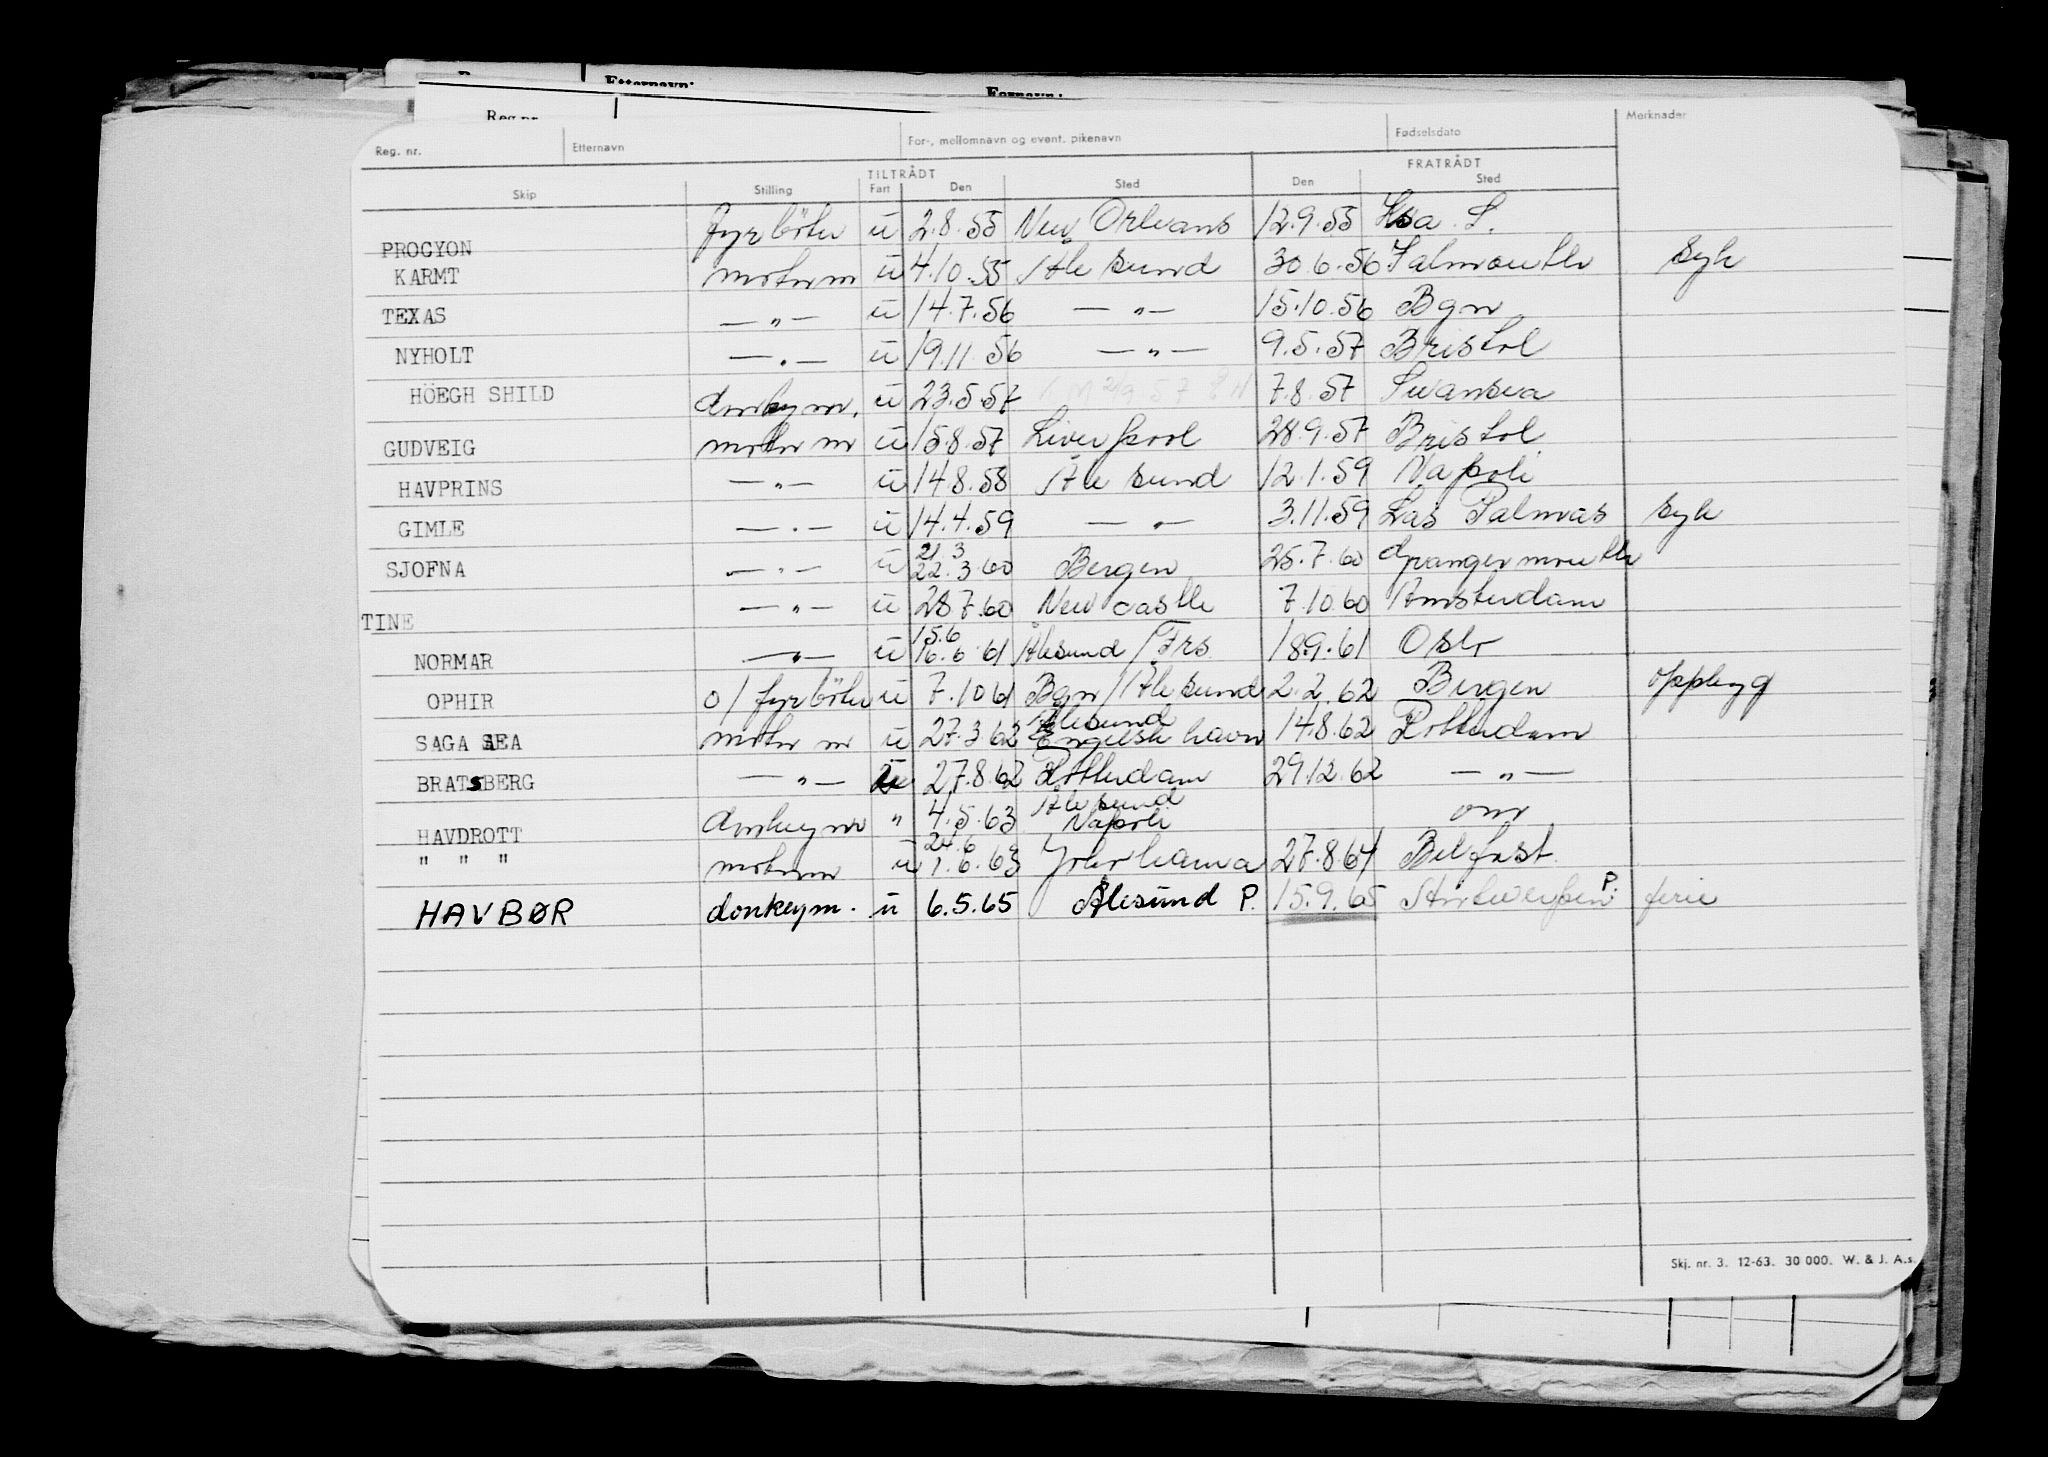 Etternavn: Fornavn:
Reg.nr.
Reg. nr. Etternavn For-, mellomnavn og event. pikenavn Fødselsdato Merknader
TILTRÅDT FRATRÅDT
Skip Stilling Fart Den Sted Den Sted
PROCYON fyrböter u 2.8.55 New Orleans 12.9.55 Usa. S.
KARMT motorm u 4.10.55 Ålesund 30.6.56 Falmouth syk
TEXAS — " — u 14.7.56 — " — 15.10.56 Bgn
NYHOLT — " — u 19.11.56 — " — 9.5.57 Bristol
HÖEGH SHILD donkeym. u 23.5.57 7.8.57 Swansea
GUDVEIG motorm u 15.8.57 Liverpool 28.9.57 Bristol
HAVPRINS — " — u 14.8.58 Ålesund 12.1.59 Napoli
GIMLE — " — u 14.4.59 — " — 3.11.59 Las Palmas syk
21.3
SJOFNA — " — u 22.3.60 Bergen 25.7.60 Grangemouth
TINE — " — u 28.7.60 Newcastle 7.10.60 Amsterdam
15.6
NORMAR — " — u 16.6.61 Ålesund/Frs 18.9.61 Oslo
OPHIR o/fyrböter u 7.10.61 Bgn/Ålesund 2.2.62 Bergen opplegg
Ålesund
SAGA SEA motorm u 27.3.62 Engelsk havn 14.8.62 Rotterdam
BRATSBERG — " — u 27.8.62 Rotterdam 29.12.62 — " —
Ålesund
HAVDROTT donkeym " 4.5.63 Napoli om
24.6
" " " motorm u 1.6.63 Yokohama 27.8.64 Belfast
HAVBØR donkeym. u 6.5.65 Ålesund P. 15.9.65 Antwerpen P. ferie
Skj. nr. 3. 12-63. 30 000. W. & J. A.s.